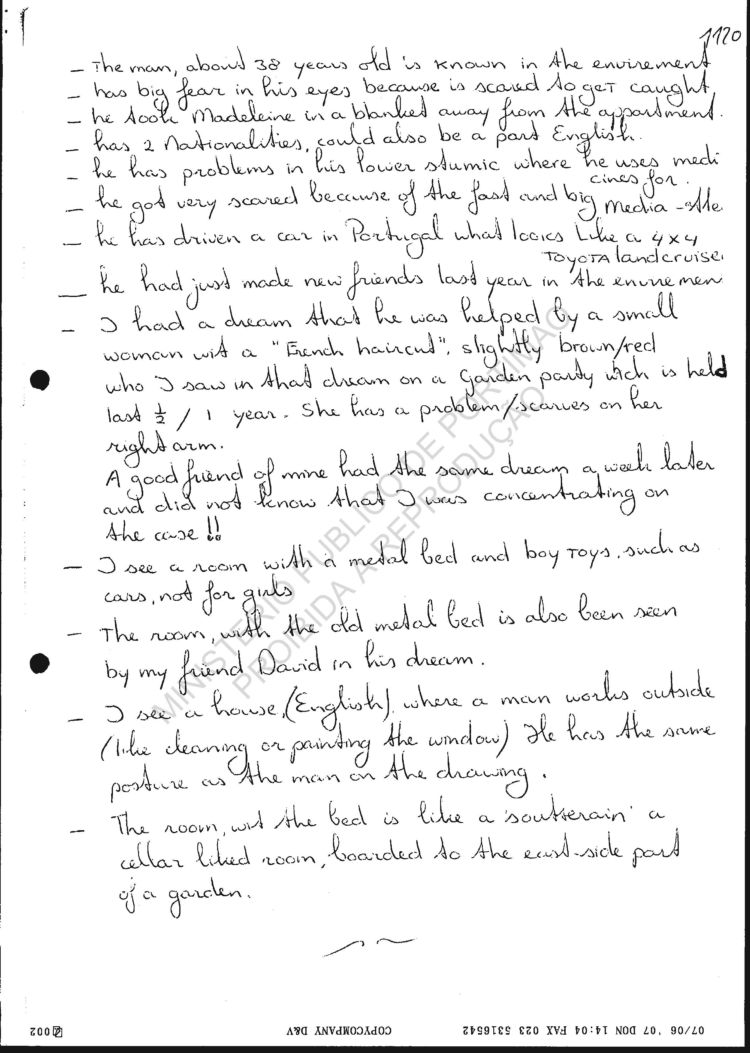 1120
- The man, about 38 years old is known in the envirement
- has big fear in his eyes because is scared to get caught
- he took Madeleine in a blanked away from the appartment.
- has 2 Nationalities, could also be a part English.
- he has problems in his lower stumic where he uses medi
cines for.
- he got very scared because of the fast and big media-atte
- he has driven a car in Portugal what looks like a 4x4
TOYOTA landcruiser
- he had just made new friends last year in the enviremen
- I had a dream that he was helped by a small
woman wit a "French haircut", slightly brown/red
who I saw in that dream on a Garden party wich is held
last ½ / 1 year. She has a problem/scarves on her
right arm.
A good friend of mine had the same dream a week later
and did not know that I was concentrating on
the case!!
- I see a room with a metal bed and boy toys, such as
cars, not for girls
- The room, with the old metal bed is also been seen
by my friend David in his dream.
- I see a house, (English), where a man works outside
(like cleaning or painting the window) He has the same
posture as the man on the drawing.
- The room, wit the bed is like a 'soutterain' a
cellar liked room, boarded to the east-side part
of a garden.
MINISTÉRIO PUBLICO DE PORTIMÃO
PROIBIDA A REPRODUÇÃO
07/06 '07 DON 14:04 FAX 023 5316542
COPYCOMPANY D&V
002